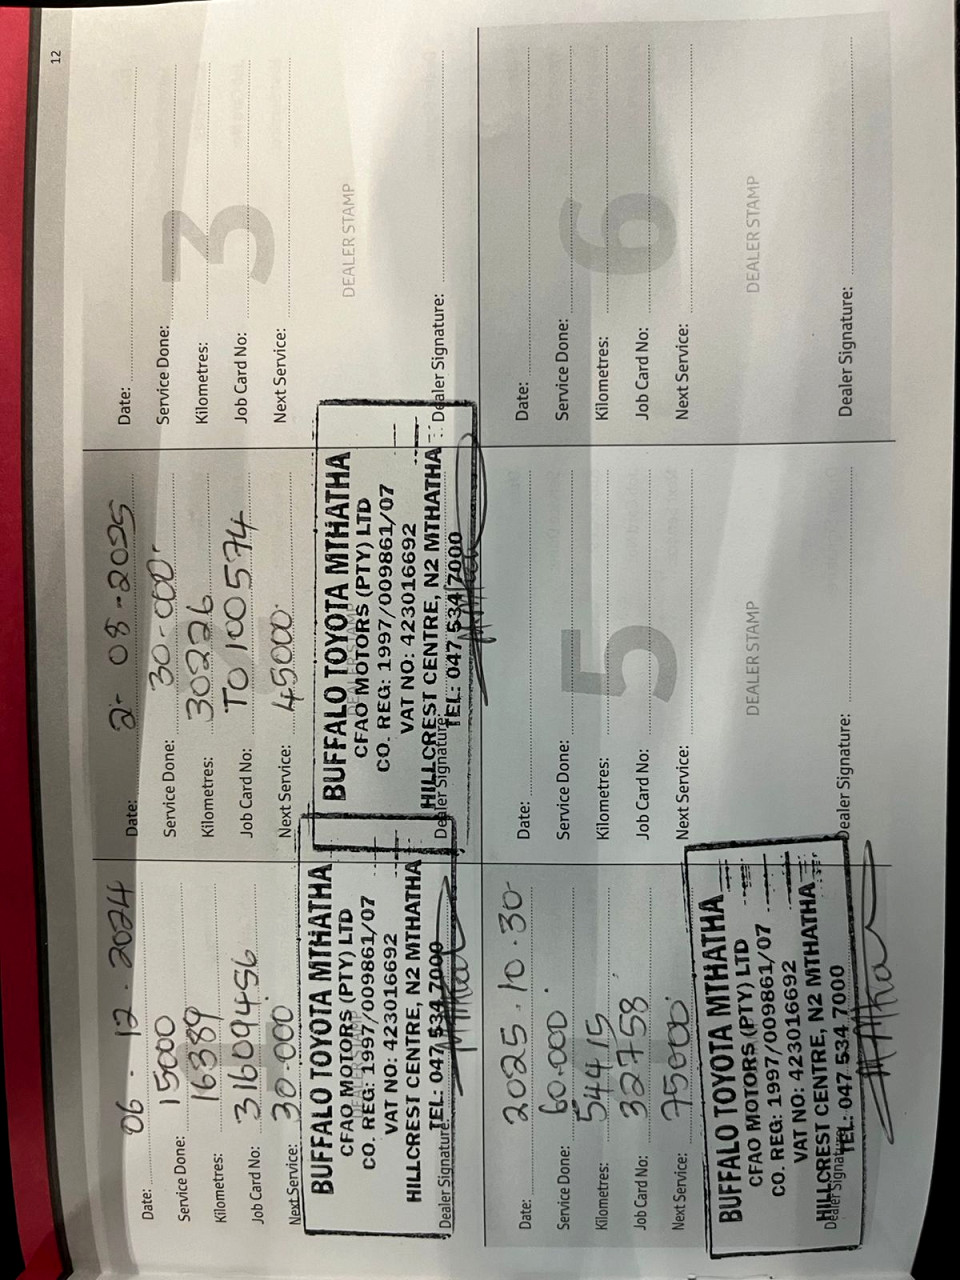 12
Date: 06.12.2024
Service Done: 15000
Kilometres: 16389
Job Card No: 31609456
Next Service: 30.000
BUFFALO TOYOTA MTHATHA
CFAO MOTORS (PTY) LTD
CO. REG: 1997/009861/07
VAT NO: 423016692
HILLCREST CENTRE, N2 MTHATHA
TEL: 047 534 7000
Dealer Signature:
Date: 2-08-2025
Service Done: 30-000
Kilometres: 30226
Job Card No: TO100574
Next Service: 45000
BUFFALO TOYOTA MTHATHA
CFAO MOTORS (PTY) LTD
CO. REG: 1997/009861/07
VAT NO: 423016692
HILLCREST CENTRE, N2 MTHATHA
TEL: 047 534 7000
Dealer Signature:
3
Date:
Service Done:
Kilometres:
Job Card No:
Next Service:
DEALER STAMP
Dealer Signature:
Date: 2025.10.30
Service Done: 60.000
Kilometres: 54415
Job Card No: 32758
Next Service: 75000
BUFFALO TOYOTA MTHATHA
CFAO MOTORS (PTY) LTD
CO. REG: 1997/009861/07
VAT NO: 423016692
HILLCREST CENTRE, N2 MTHATHA
TEL: 047 534 7000
Dealer Signature:
5
Date:
Service Done:
Kilometres:
Job Card No:
Next Service:
DEALER STAMP
Dealer Signature:
6
Date:
Service Done:
Kilometres:
Job Card No:
Next Service:
DEALER STAMP
Dealer Signature: